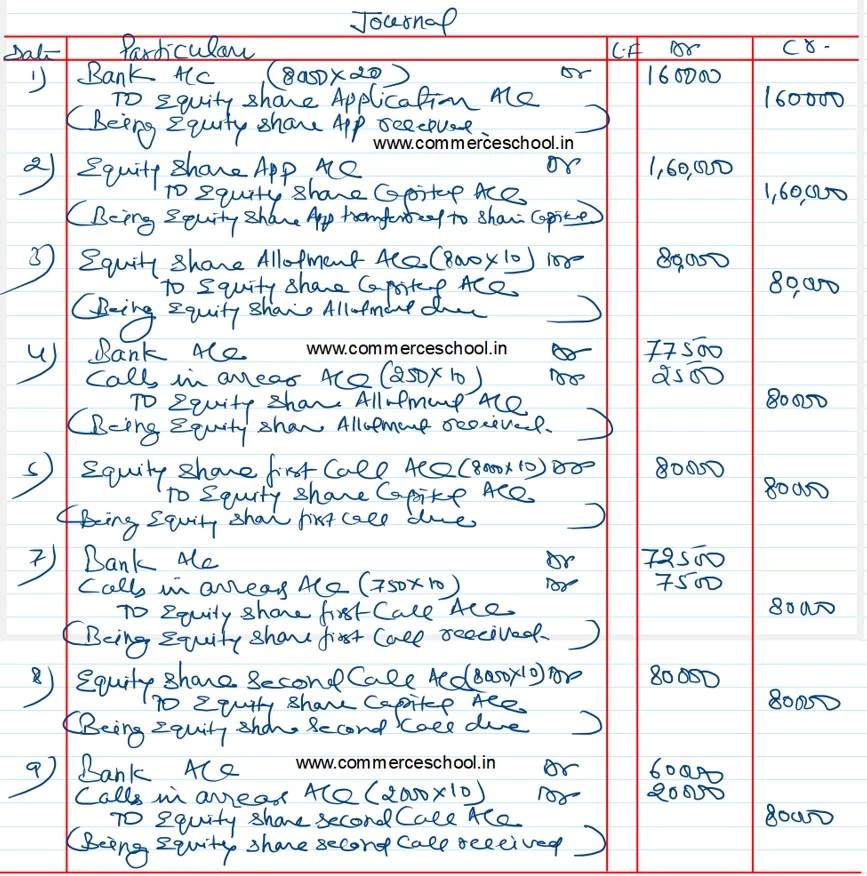 Journal
Date Particulars L.F Dr Cr.
1) Bank A/c (8000×20) Dr 160000
TO Equity share Application A/c 160000
(Being Equity share App received.)
www.commerceschool.in
2) Equity share App A/c Dr 1,60,000
TO Equity share Capital A/c 1,60,000
(Being Equity share App transferred to share Capital)
3) Equity share Allotment A/c (8000×10) Dr 80,000
TO Equity share Capital A/c 80,000
(Being Equity share Allotment due)
4) Bank A/c www.commerceschool.in Dr 77500
Calls in arrears A/c (250×10) Dr 2500
TO Equity share Allotment A/c 80000
(Being Equity share Allotment received.)
Equity share first Call A/c (8000×10) Dr 80000
TO Equity share Capital A/c 80000
(Being Equity share first Call due)
7) Bank A/c Dr 72500
Calls in arrears A/c (750×10) Dr 7500
TO Equity share first Call A/c 80000
(Being Equity share first Call received.)
8) Equity share Second Call A/c (8000×10) Dr 80000
TO Equity share Capital A/c 80000
(Being Equity share Second Call due)
9) Bank A/c www.commerceschool.in Dr 60000
Calls in arrears A/c (2000×10) Dr 20000
TO Equity share second Call A/c 80000
(Being Equity share second Call received)